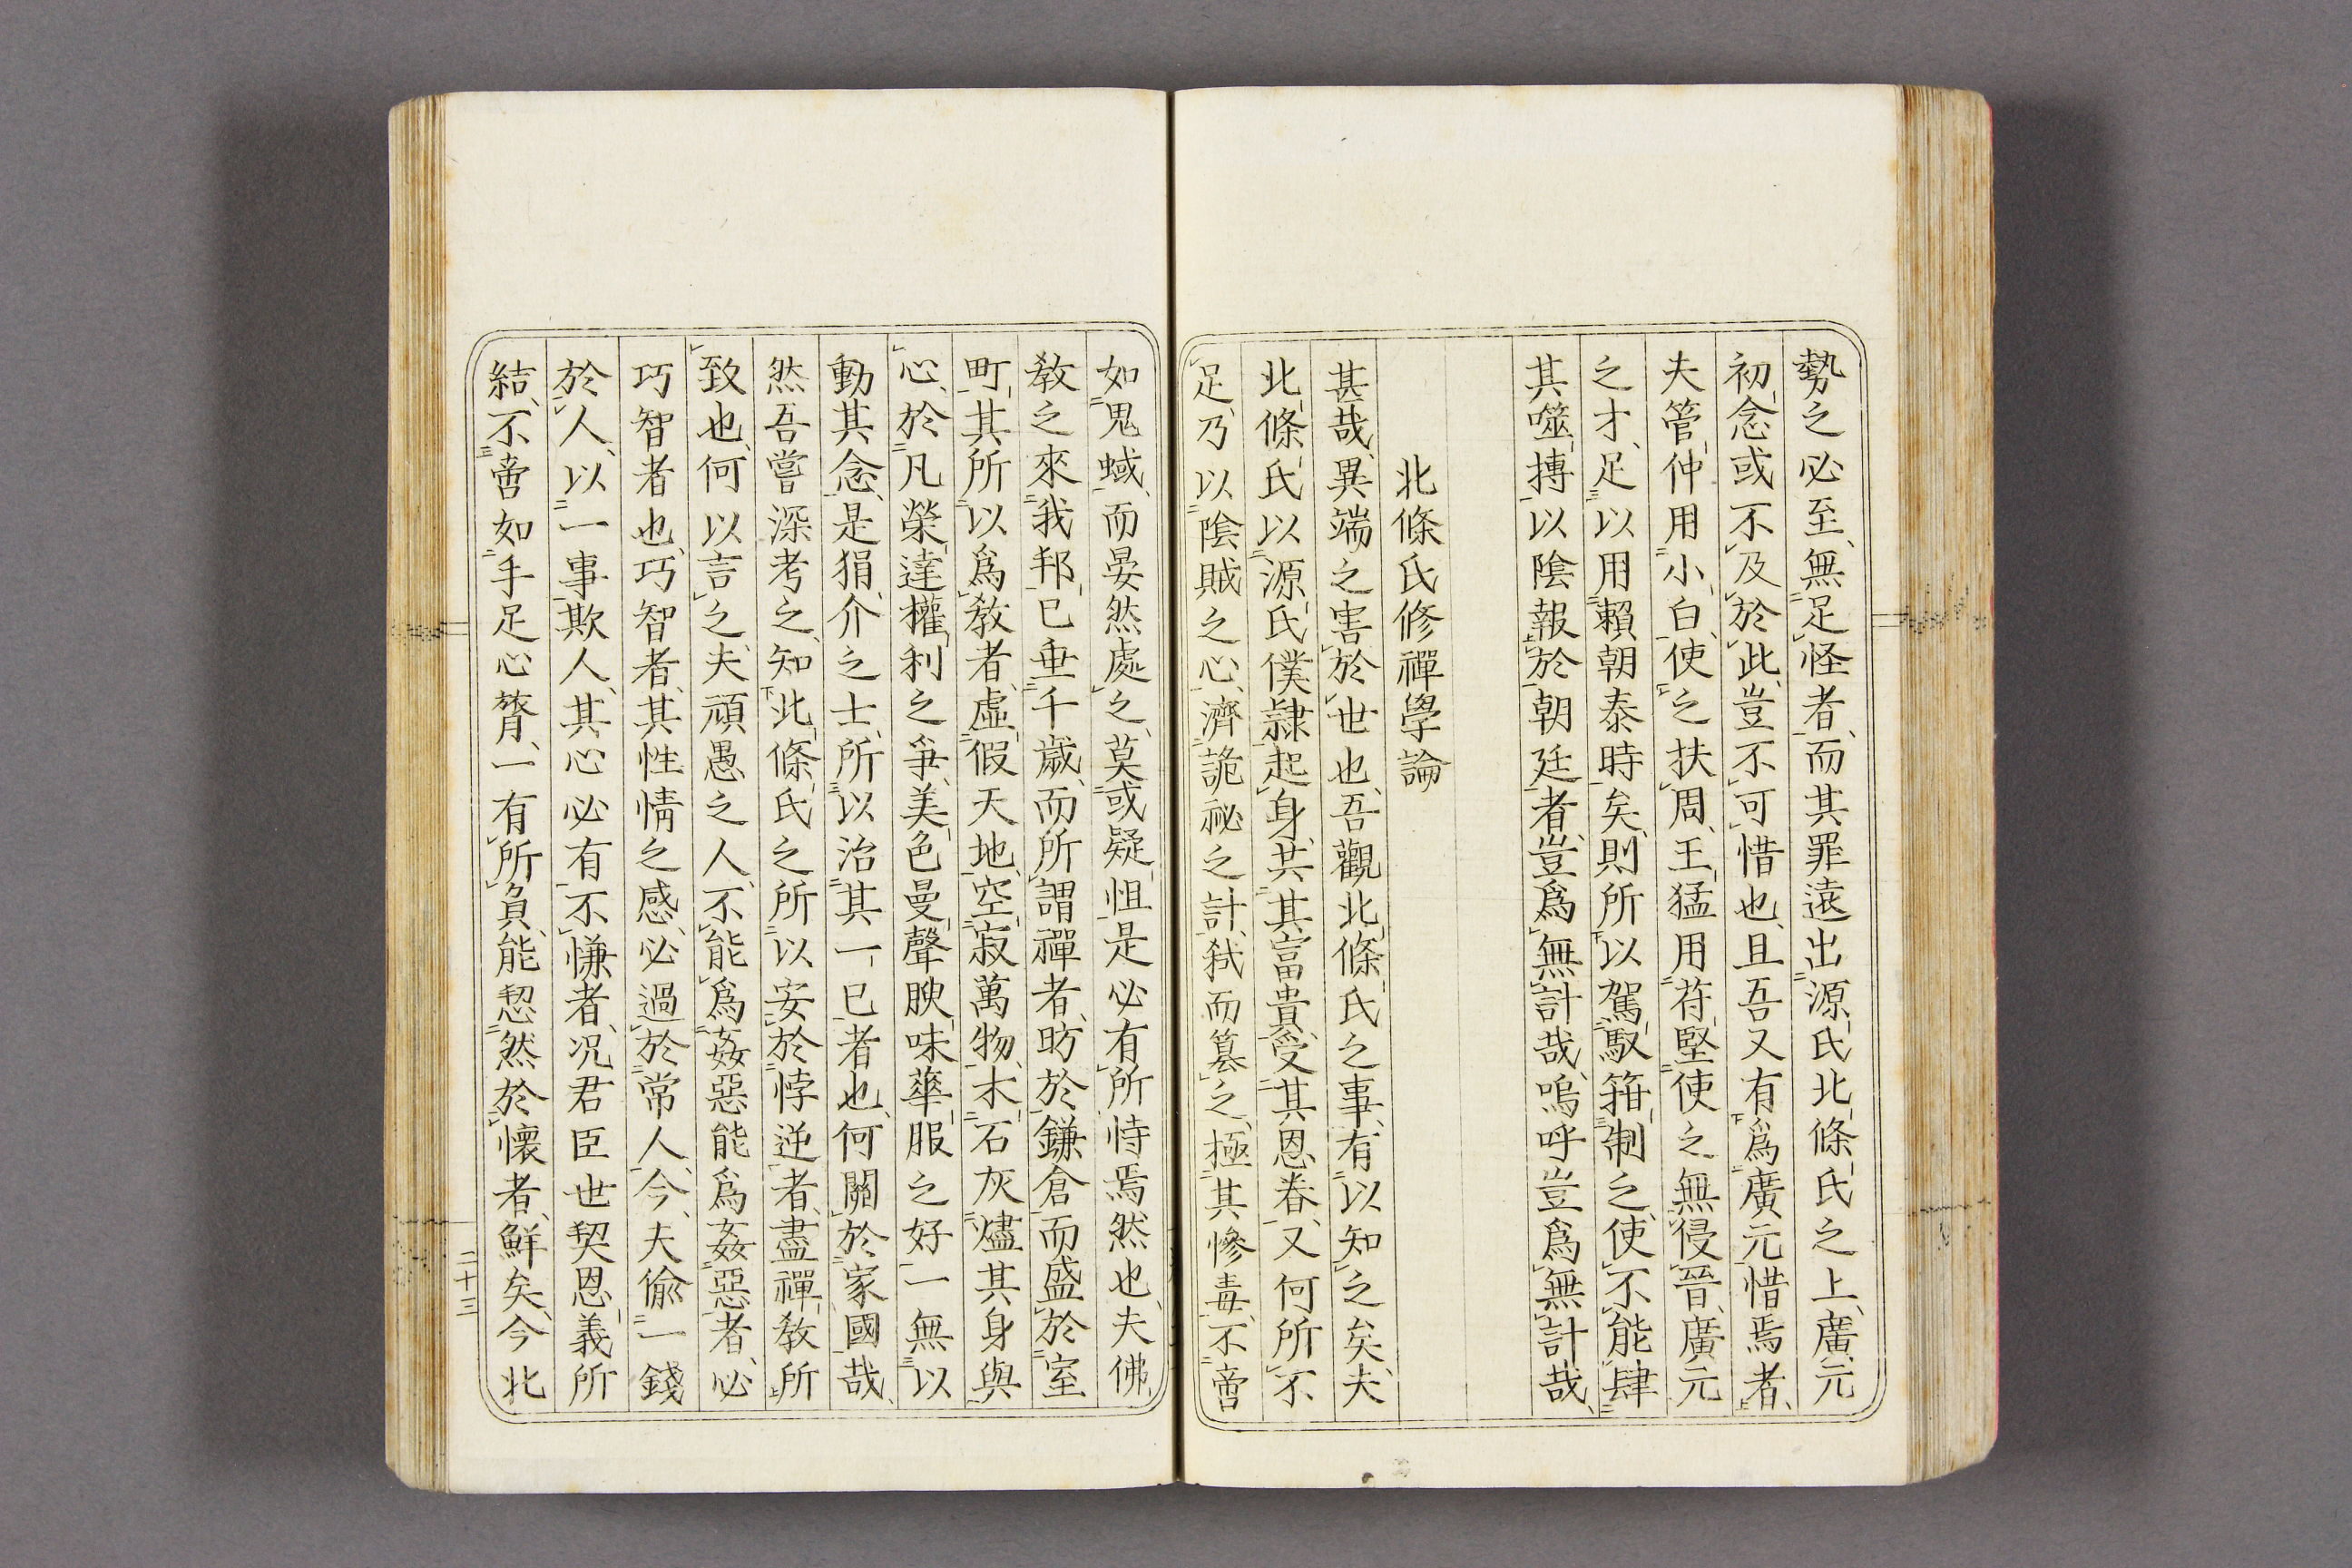 勢之必至、無足怪者、而其罪遠出源氏北條氏之上、廣元
初念或不及於此、豈不可惜也、且吾又有爲廣元惜焉者、
夫管仲用小白、使之扶周、王猛用苻堅、使之無侵晉、廣元
之才、足以用賴朝泰時矣、則所以駕馭箝制之、使不能肆
其噬搏以陰報於朝廷者、豈爲無計哉、嗚呼豈爲無計哉、
北條氏修禪學論
甚哉、異端之害於世也、吾觀北條氏之事、有以知之矣、夫
北條氏以源氏僕隷起身、共其富貴、受其恩眷、又何所不
足、乃以陰賊之心、濟詭祕之計、弑而簒之、極其慘毒、不啻
如鬼蜮、而晏然處之、莫或疑怛、是必有所恃焉然也、夫佛
教之來我邦、已垂千歲、而所謂禪者、昉於鎌倉、而盛於室
町、其所以爲教者、虛假天地、空寂萬物、木石灰燼其身與
心、於凡榮達權利之爭、美色曼聲腴味華服之好、一無以
動其念、是狷介之士、所以治其一已者也、何關於家國哉、
然吾嘗深考之、知北條氏之所以安於悖逆者、盡禪教所
致也、何以言之、夫頑愚之人、不能爲姦惡、能爲姦惡者、必
巧智者也、巧智者、其性情之感、必過於常人、今夫偸一錢
於人、以一事欺人、其心必有不慊者、况君臣世契恩義所
結、不啻如手足心膂、一有所負、能恝然於懷者、鮮矣、今北
二十三